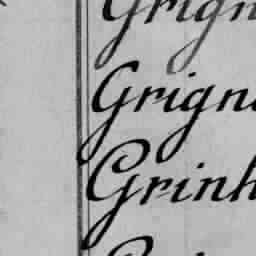 Grign
Grign
Grinh